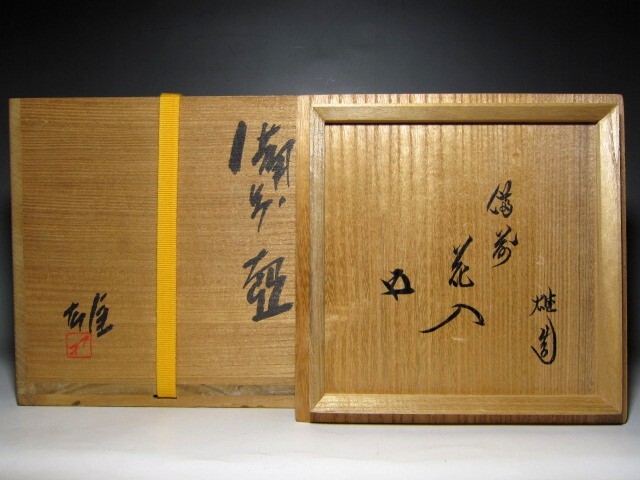 備前
壺
雄
備前
花入
雄造